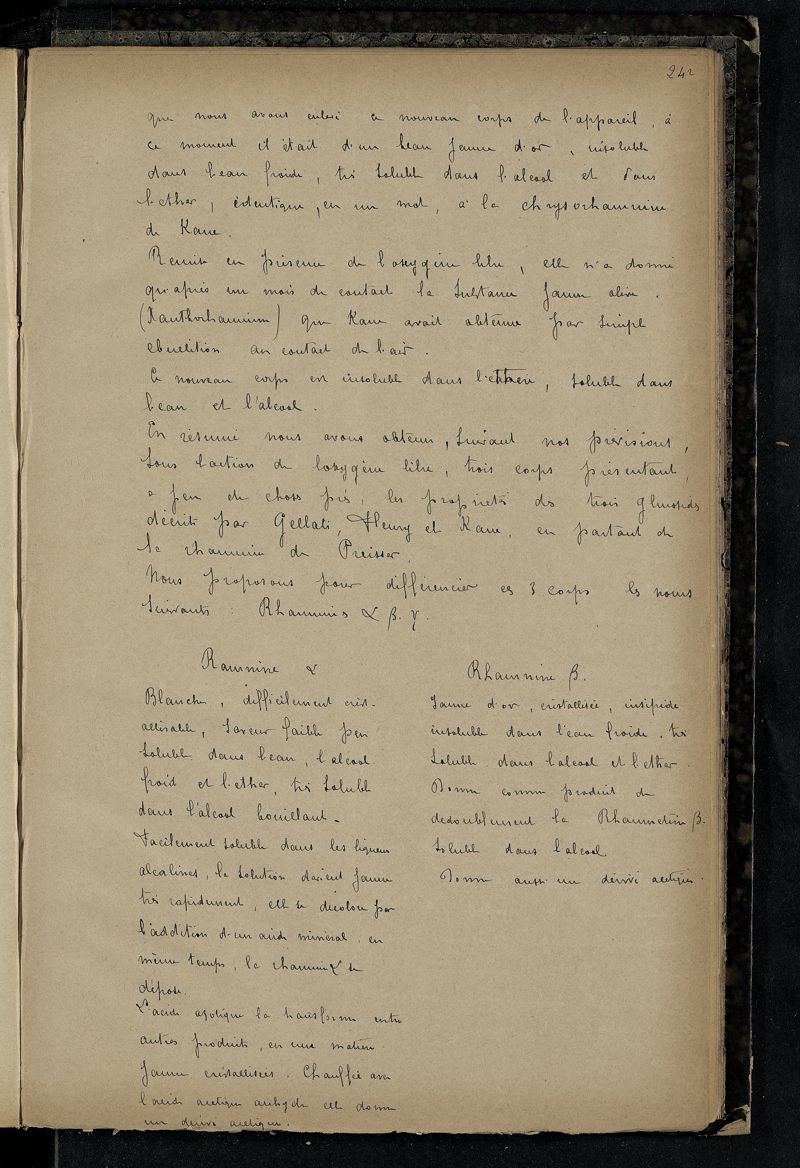 242
que nous avons enlevé ce nouveau corps de l'appareil, à
ce moment il était d'un beau jaune d'or, insoluble
dans l'eau froide, très soluble dans l'alcool et dans
l'ether, identique, en un mot, à la chrysorhamnine
de Kane.
Remise en présence de l'oxygène libre, elle n'a donné
qu'après un mois de contact la substance jaune olive.
(Xanthorhamnine) que Kane avait obtenue par simple
ebullition au contact de l'air.
Ce nouveau corps est insoluble dans l'ether, soluble dans
l'eau et l'alcool.
En résumé nous avons obtenu, suivant nos prévisions,
sous l'action de l'oxygène libre, trois corps présentant,
a peu de chose près, les propriétés des trois glucosides
décrits par Gellati, Fleury et Kane, en partant de
la rhamnine de Preisser.
Nous proposons pour différencier ces 3 corps les noms
suivants : Rhamnines α β. γ.
Ramnine α
Blanche, difficilement crist-
allisable, saveur faible peu
soluble dans l'eau, l'alcool
froid et l'ether, très soluble
dans l'alcool bouillant.
Facilement soluble dans les liqueurs
alcalines, la solution devient jaune
très rapidement, elle se décolore par
l'addition d'un acide minéral, en
même temps, la rhamnine α se
dépose.
L'acide azotique la transforme entre
autres produits, en une matière
jaune cristallisée. Chauffée avec
l'acide acétique anhydre elle donne
un dérivé acétique.
Rhamnine β.
Jaune d'or, cristallisée, insipide
insoluble dans l'eau froide, très
soluble dans l'alcool et l'ether.
Donne comme produit de
dedoublement la Rhamnetine β.
soluble dans l'alcool
Donne aussi un dérivé acétique.